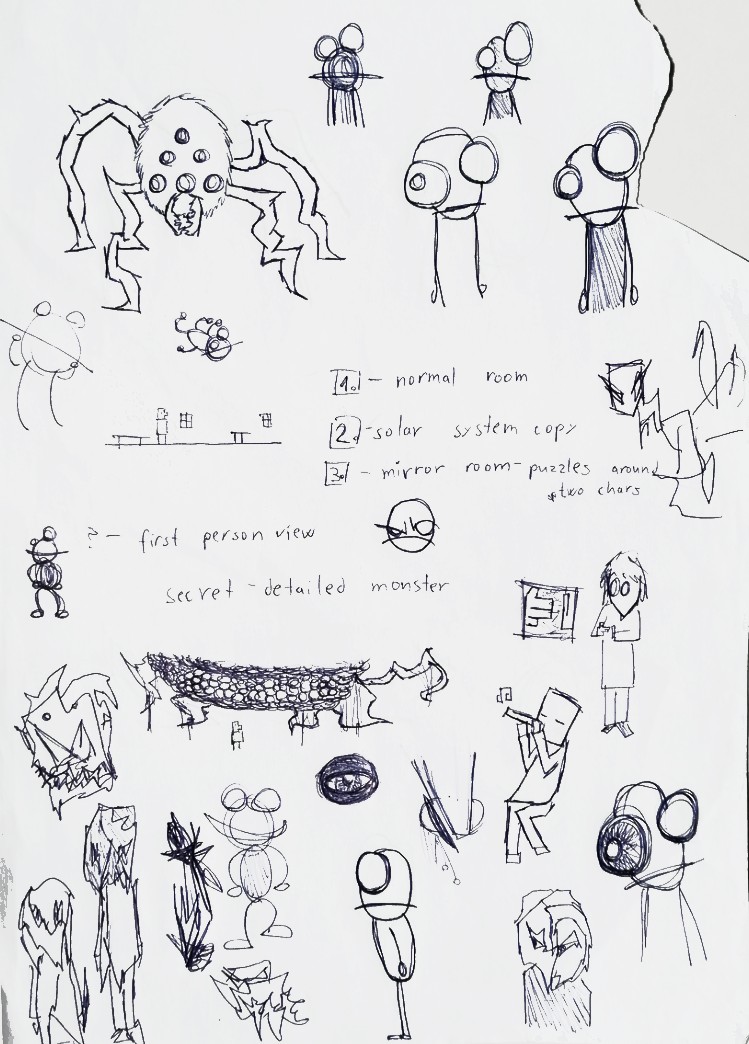 1. - normal room
2. - solar system copy
3. - mirror room - puzzles around
two chars
? - first person view
secret - detailed monster